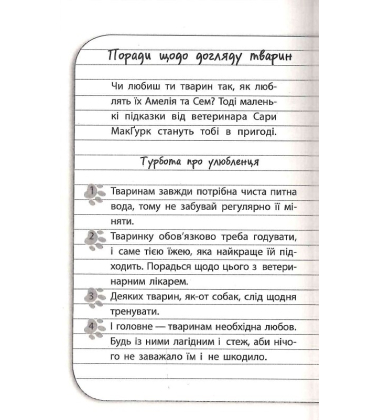 Поради щодо догляду тварин
Чи любиш ти тварин так, як люб-
лять їх Амелія та Сем? Тоді малень-
кі підказки від ветеринара Сари
МакҐурк стануть тобі в пригоді.
Турбота про улюбленця
1 Тваринам завжди потрібна чиста питна
вода, тому не забувай регулярно її мі-
няти.
2 Тваринку обов'язково треба годувати,
і саме тією їжею, яка найкраще їй під-
ходить. Порадься щодо цього з ветери-
нарним лікарем.
3 Деяких тварин, як-от собак, слід щодня
тренувати.
4 І головне — тваринам необхідна любов.
Будь із ними лагідним і стеж, аби нічо-
го не заважало їм і не шкодило.